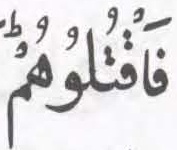 فَاقْتُلُوْهُمْؕ